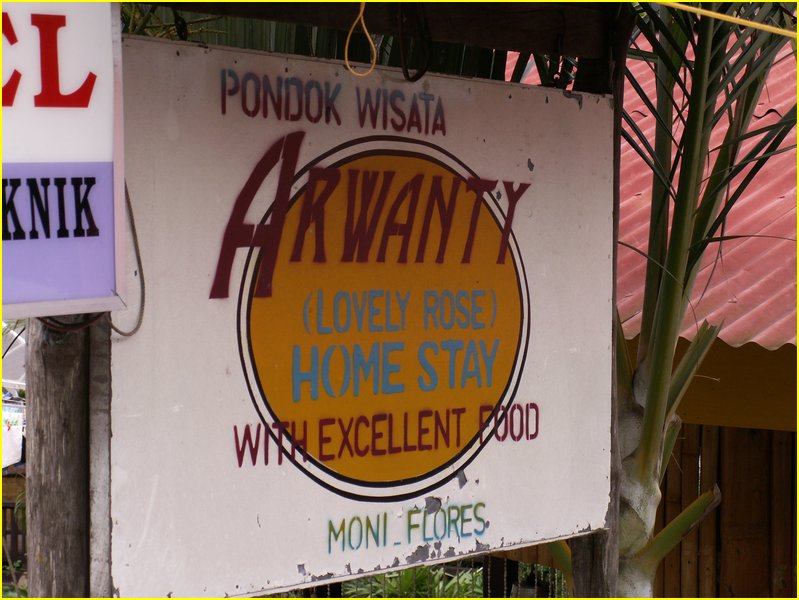 EL
KNIK
PONDOK WISATA
ARWANTY
(LOVELY ROSE)
HOME STAY
WITH EXCELLENT FOOD
MONI_FLORES